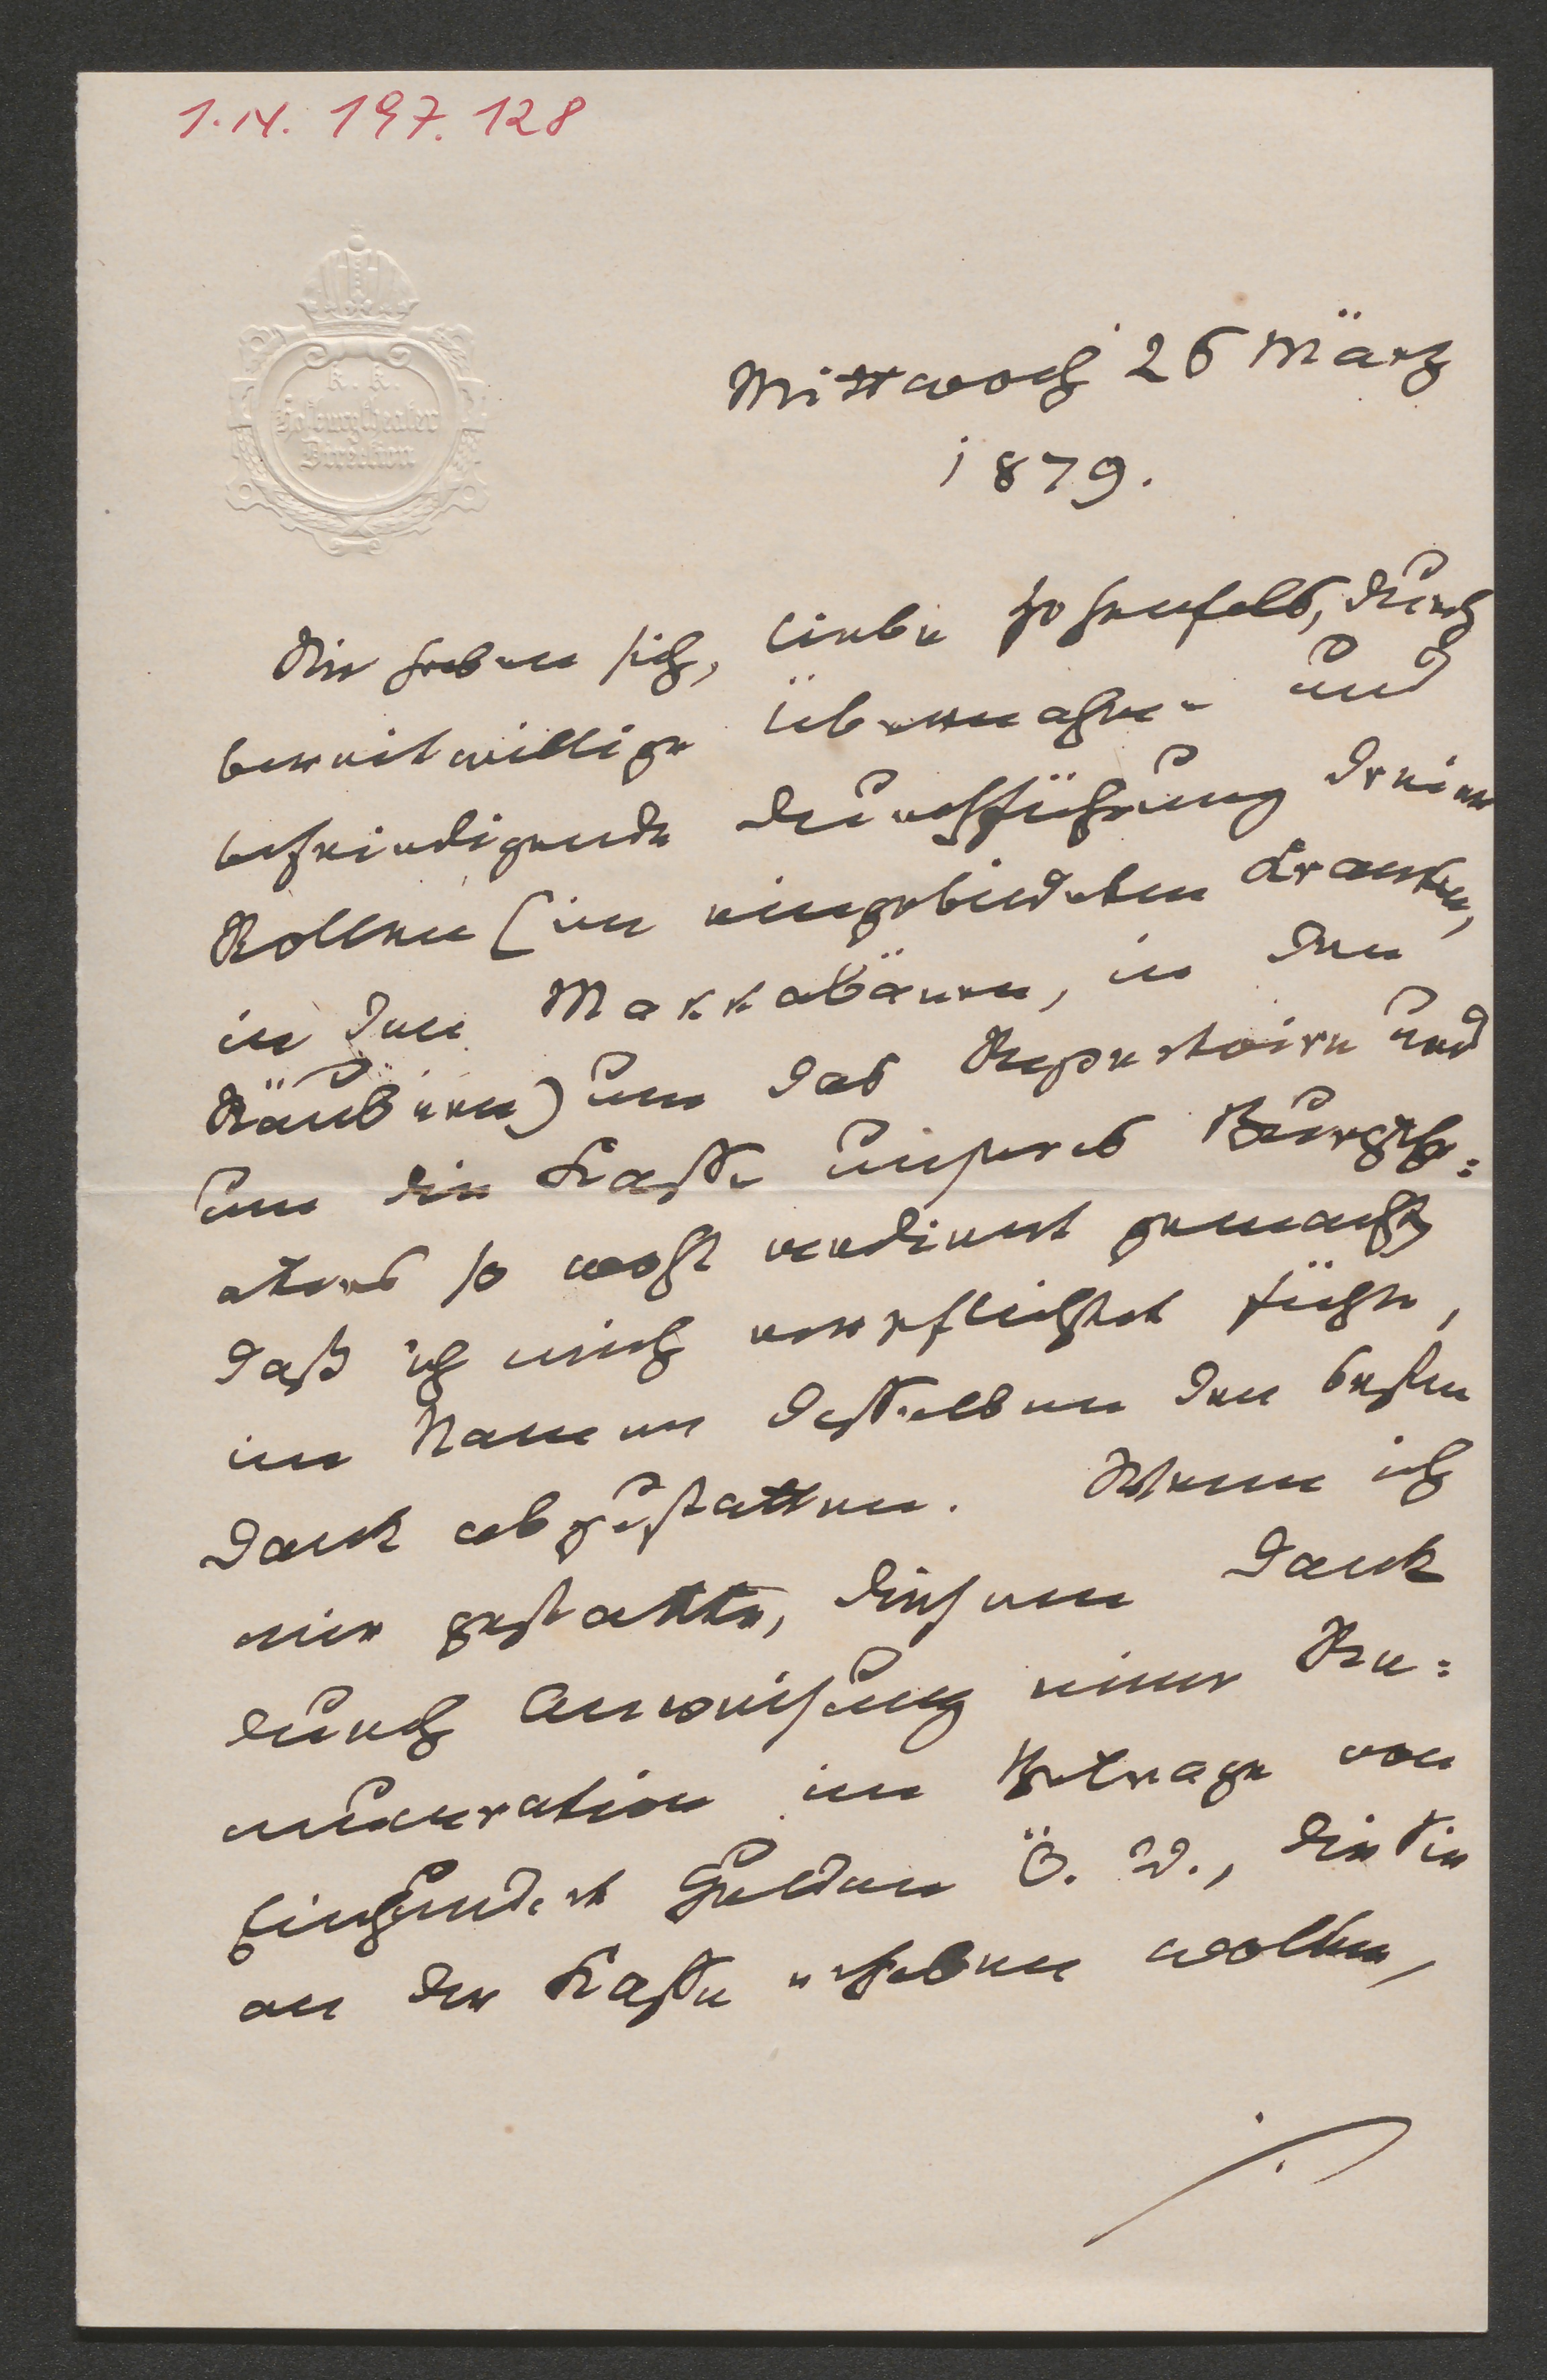 I.N. 197.128
K. K.
Hofburgtheater
Direction
Mittwoch 26 März
1879.
Sie haben sich, liebe Hohenfels, durch
bereitwillige Übernahme und
befriedigende Durchführung dreier
Rollen (im eingebildeten Kranken,
in den Makkabäern, in den
Räubern) um das Repertoire und
um die Kasse unseres Burgthe=
aters so wohl verdient gemacht
daß ich mich verpflichtet fühle,
im Namen desselben den besten
Dank abzustatten. Wenn ich
mir gestatte, diesem Dank
durch Anweisung einer Re=
muneration im Betrage von
Einhundert Gulden Ö. W., die Sie
an der Kasse erheben wollen,